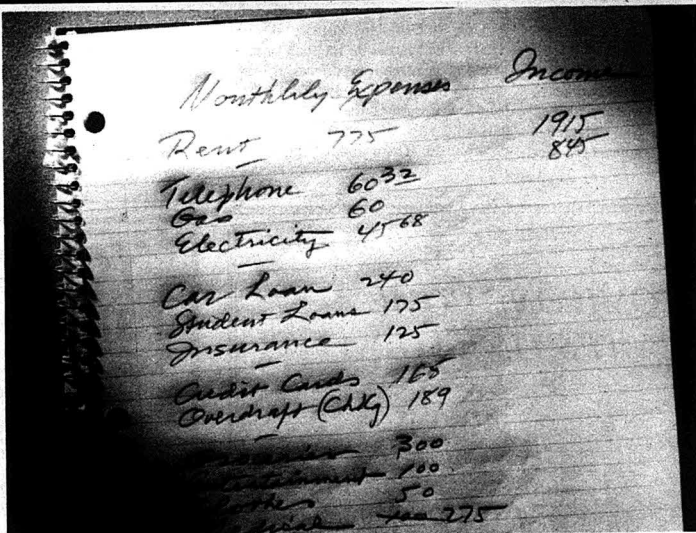 Monthlily Expenses Income
Rent 775 1915
845
Telephone 60 32
Gas 60
Electricity 45 68
Car Loan 240
Student Loans 175
Insurance 125
Credit Cards 165
Overdraft (Chkg) 189
300
Entertainment 100
Clothes 50
275